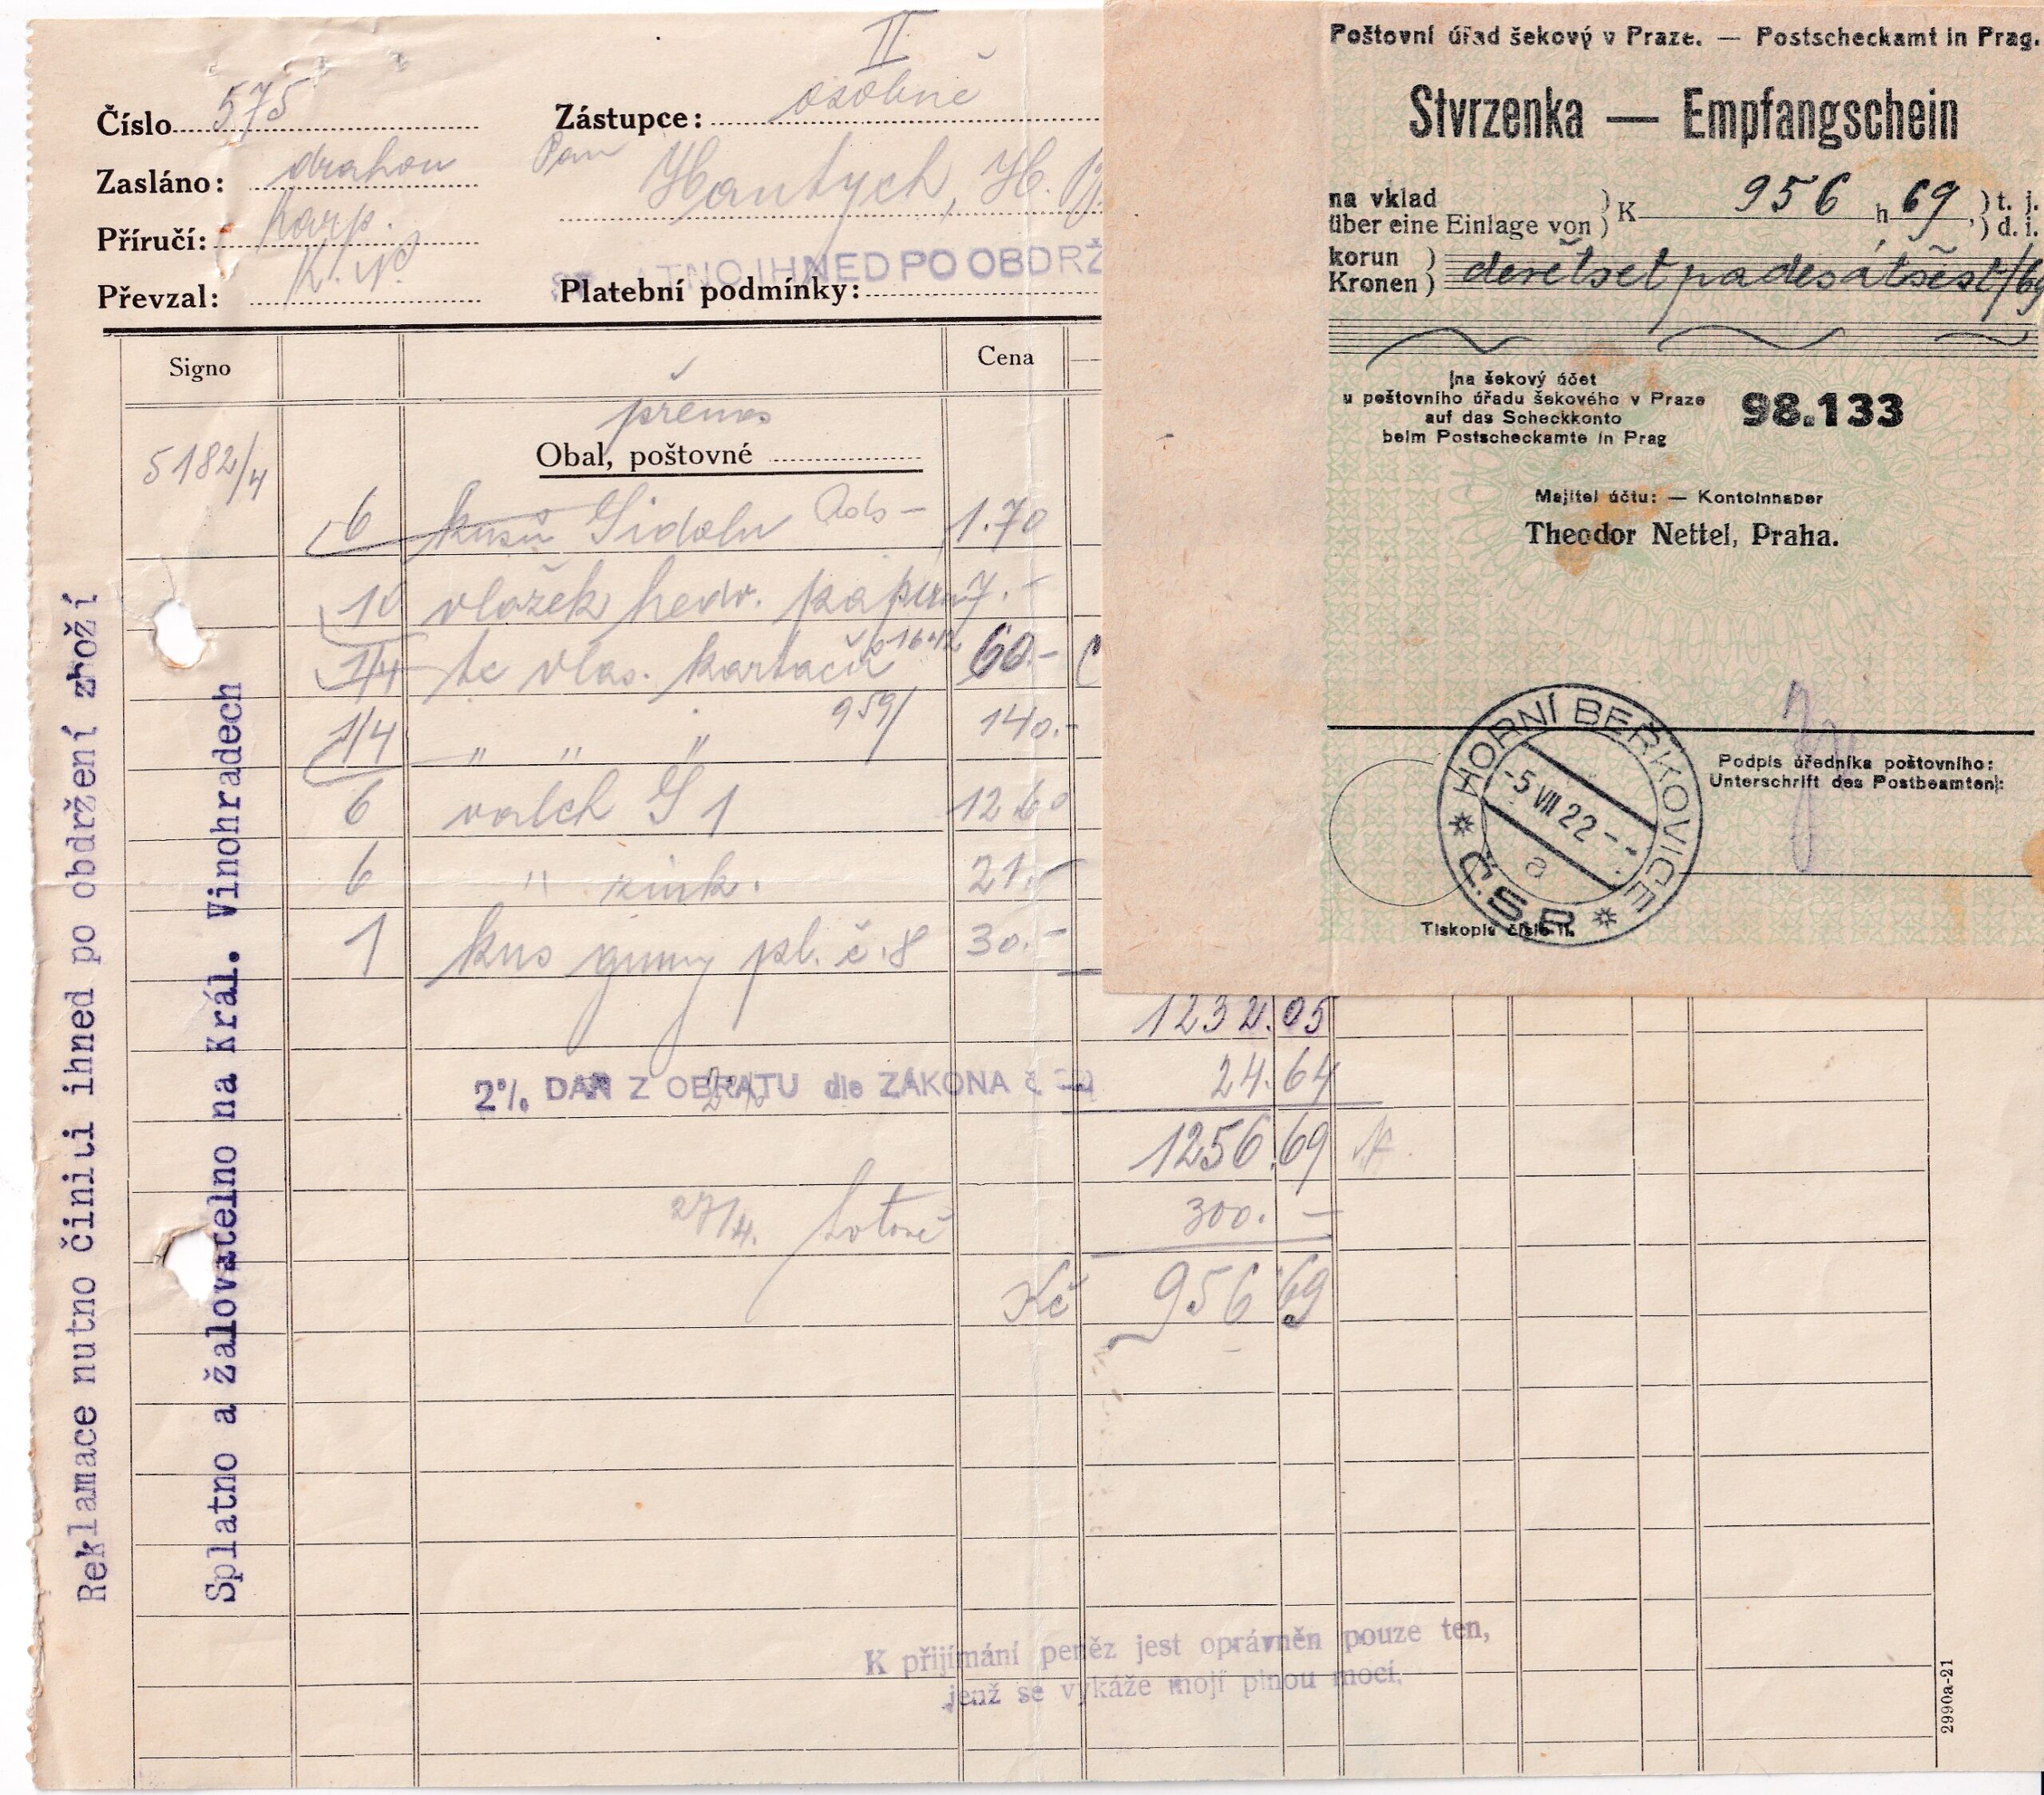 II
Číslo 575
Zástupce: osobně
Zasláno: drahou
Pan Hantych, H.
Příručí: Karp.
ST TNO IHNED PO OBDRŽ
Převzal:
Platební podmínky:
Signo
Cena
přenos
Obal, poštovné
5182/4
6 kusů Sidolu 1.70
10 vložek hedv. papíru 7.-
1/4 tc vlas. kartáčů 60.-
1/4 " " " 959/ 140.-
6 valch G 1 12 60
6 " zink. 21.-
1 kus gumy pl. č. 8 30.-
1232.05
2% DAŇ Z OBRATU dle ZÁKONA č
24.64
1256.69
27/4. hotově 300.-
Kč 956 69
K přijímání peněz jest oprávněn pouze ten,
jenž se vykáže mojí plnou mocí.
2990a-21
Reklamace nutno činiti ihned po obdržení zboží
Splatno a žalovatelno na Král. Vinohradech
Poštovní úřad šekový v Praze. — Postscheckamt in Prag.
Stvrzenka — Empfangschein
na vklad
über eine Einlage von } K 956 h 69, } t. j. d. i.
korun
Kronen } devětset padesátšest/69
na šekový účet
u poštovního úřadu šekového v Praze
auf das Scheckkonto
beim Postscheckamte in Prag
98.133
Majitel účtu: — Kontoinhaber
Theodor Nettel, Praha.
HORNÍ BEŘKOVICE
-5 VII 22 --
a
* Č.S.R *
Podpis úředníka poštovního:
Unterschrift des Postbeamten:
Tiskopis číslo II.